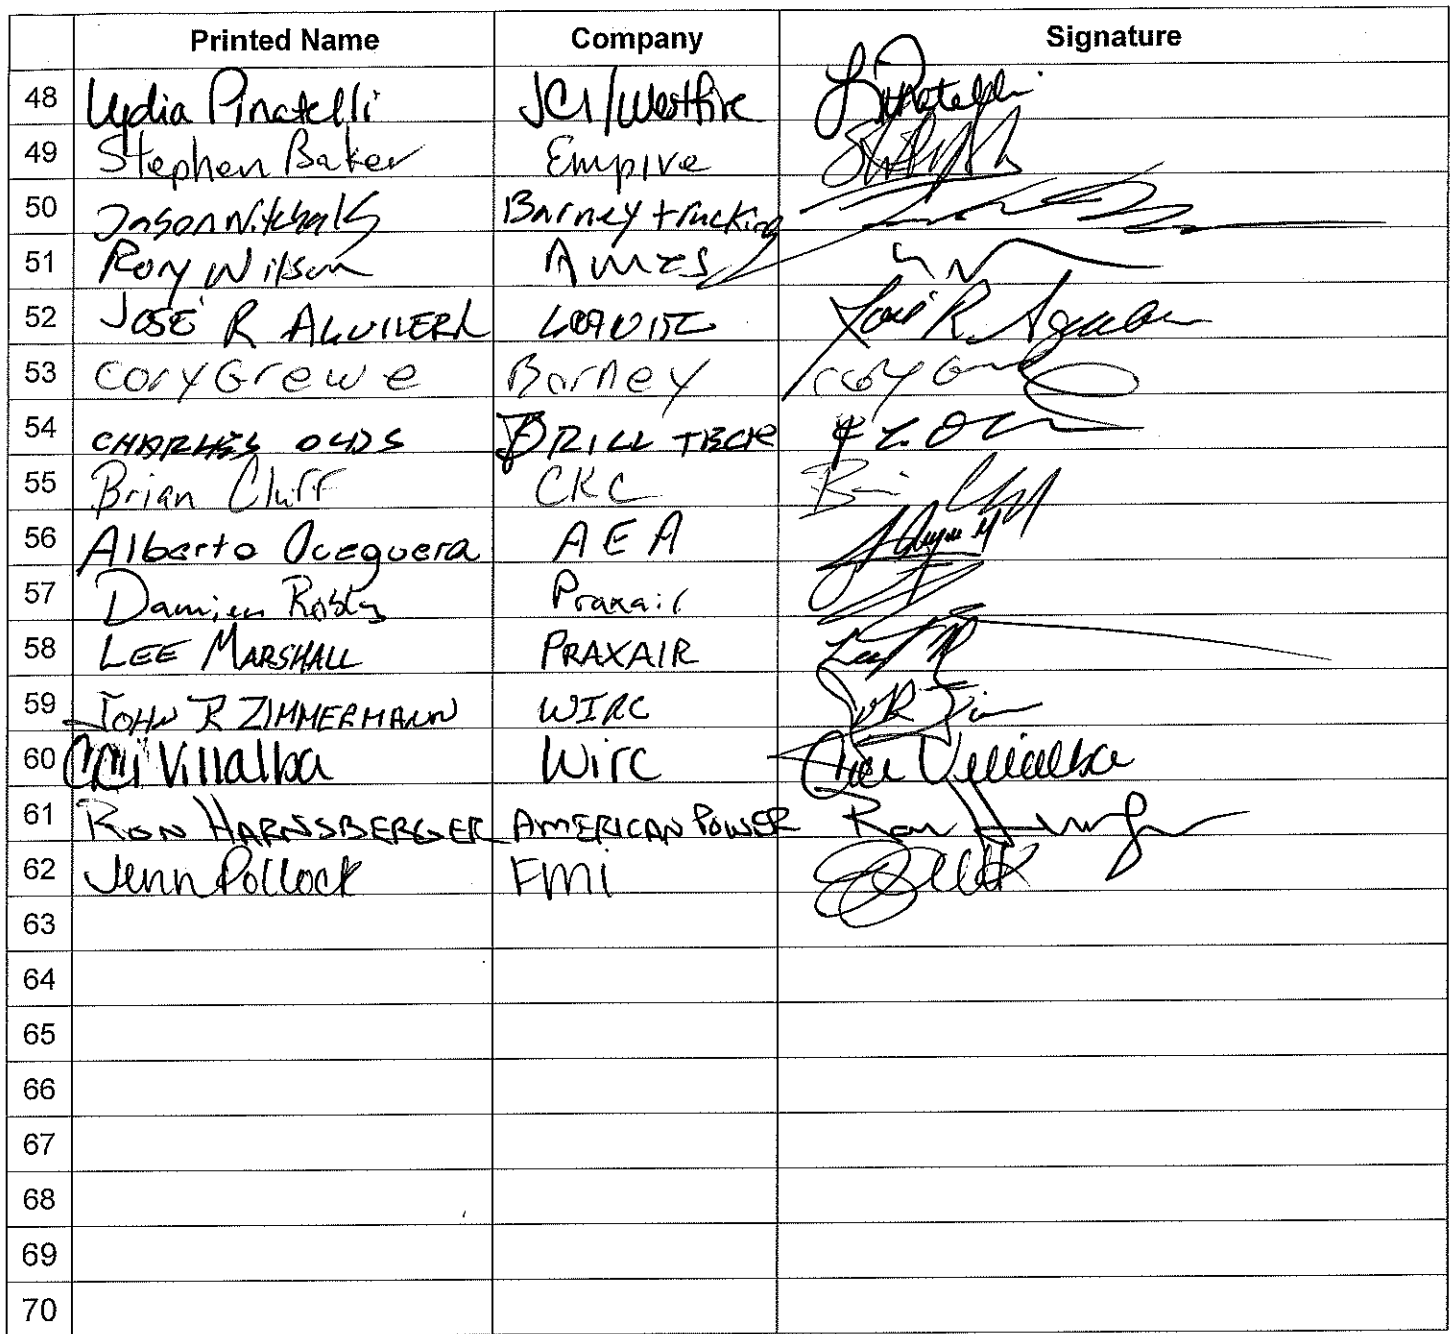 Printed Name Company Signature
48 Lydia Pinatelli JCI/Westfire
49 Stephen Baker Empire
50 Jason Barney trucking
51 Rory Wilson Ames
52 JOSE R AGUILERA Jose R. Aguilera
53 Cory Grewe Barney Cory
54 CHARLES OLDS DRILL TECH
55 Brian Cluff CKC
56 Alberto Oceguera AEA
57 Damien Praxair
58 LEE MARSHALL PRAXAIR
59 JOHN R ZIMMERMANN WIRC
60 Villalba Wirc Villalba
61 RON HARNSBERGER AMERICAN POWER Ron
62 Jenn Pollock FMI
63
64
65
66
67
68
69
70